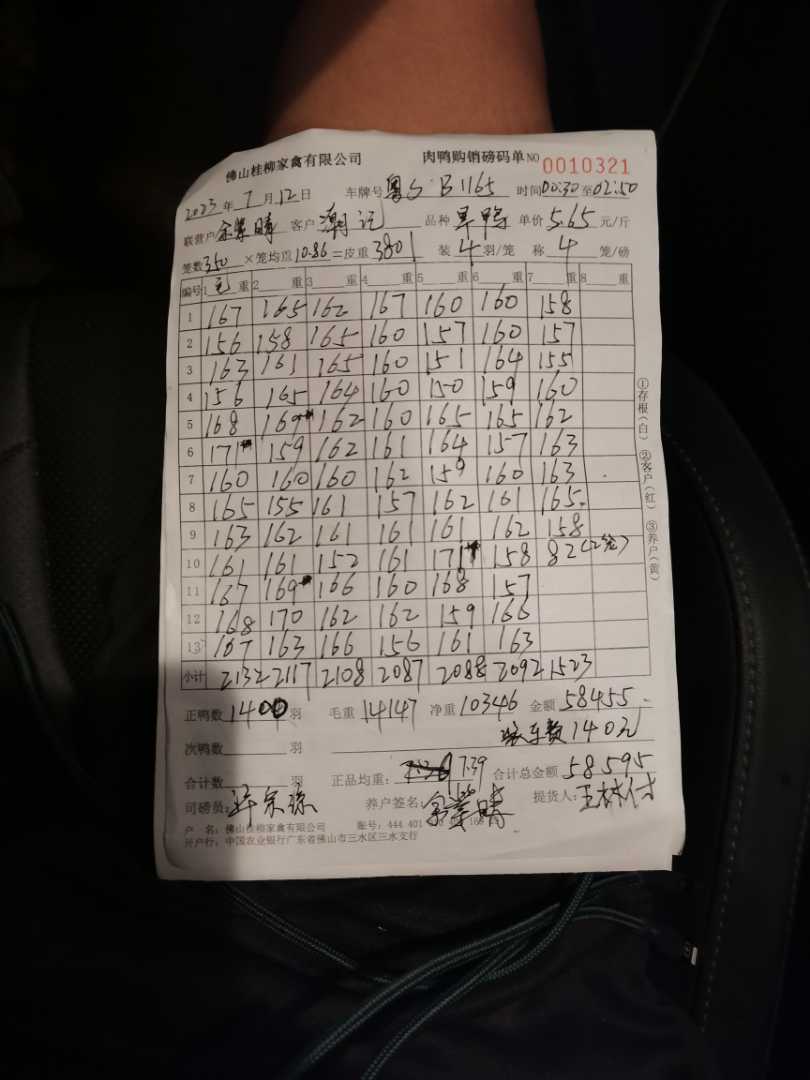 佛山桂柳家禽有限公司 肉鸭购销磅码单 NO 0010321
2023年7月12日 车牌号 粤S B1165 时间00:30至02:50
联营户 客户 潮记 品种 旱鸭 单价 5.65 元/斤
笼数350×笼均重10.86=皮重3801 装4羽/笼 称4笼/磅
编号 1毛重 2重 3重 4重 5重 6重 7重 8重
1 167 165 162 167 160 160 158
2 156 158 165 160 157 160 157
3 163 161 165 160 151 164 155
4 156 165 164 160 150 159 160
5 168 169 162 160 165 165 162
6 171 159 162 161 164 157 163
7 160 160 160 162 159 160 163
8 165 155 161 157 162 161 165
9 163 162 161 161 161 162 158
10 161 161 152 161 171 158 82(2笼)
11 167 169 166 160 168 157
12 168 170 162 162 159 166
13 167 163 166 156 161 163
小计 2132 2117 2108 2087 2088 2092 1523
①存根(白) ②客户(红) ③养户(黄)
正鸭数1400羽 毛重14147 净重10346 金额58455
车费140元
次鸭数 羽
合计数 羽 正品均重: 7.39 合计总金额58595
司磅员: 养户签名: 提货人:
户 名:佛山桂柳家禽有限公司 账号:444 401
开户行:中国农业银行广东省佛山市三水区三水支行